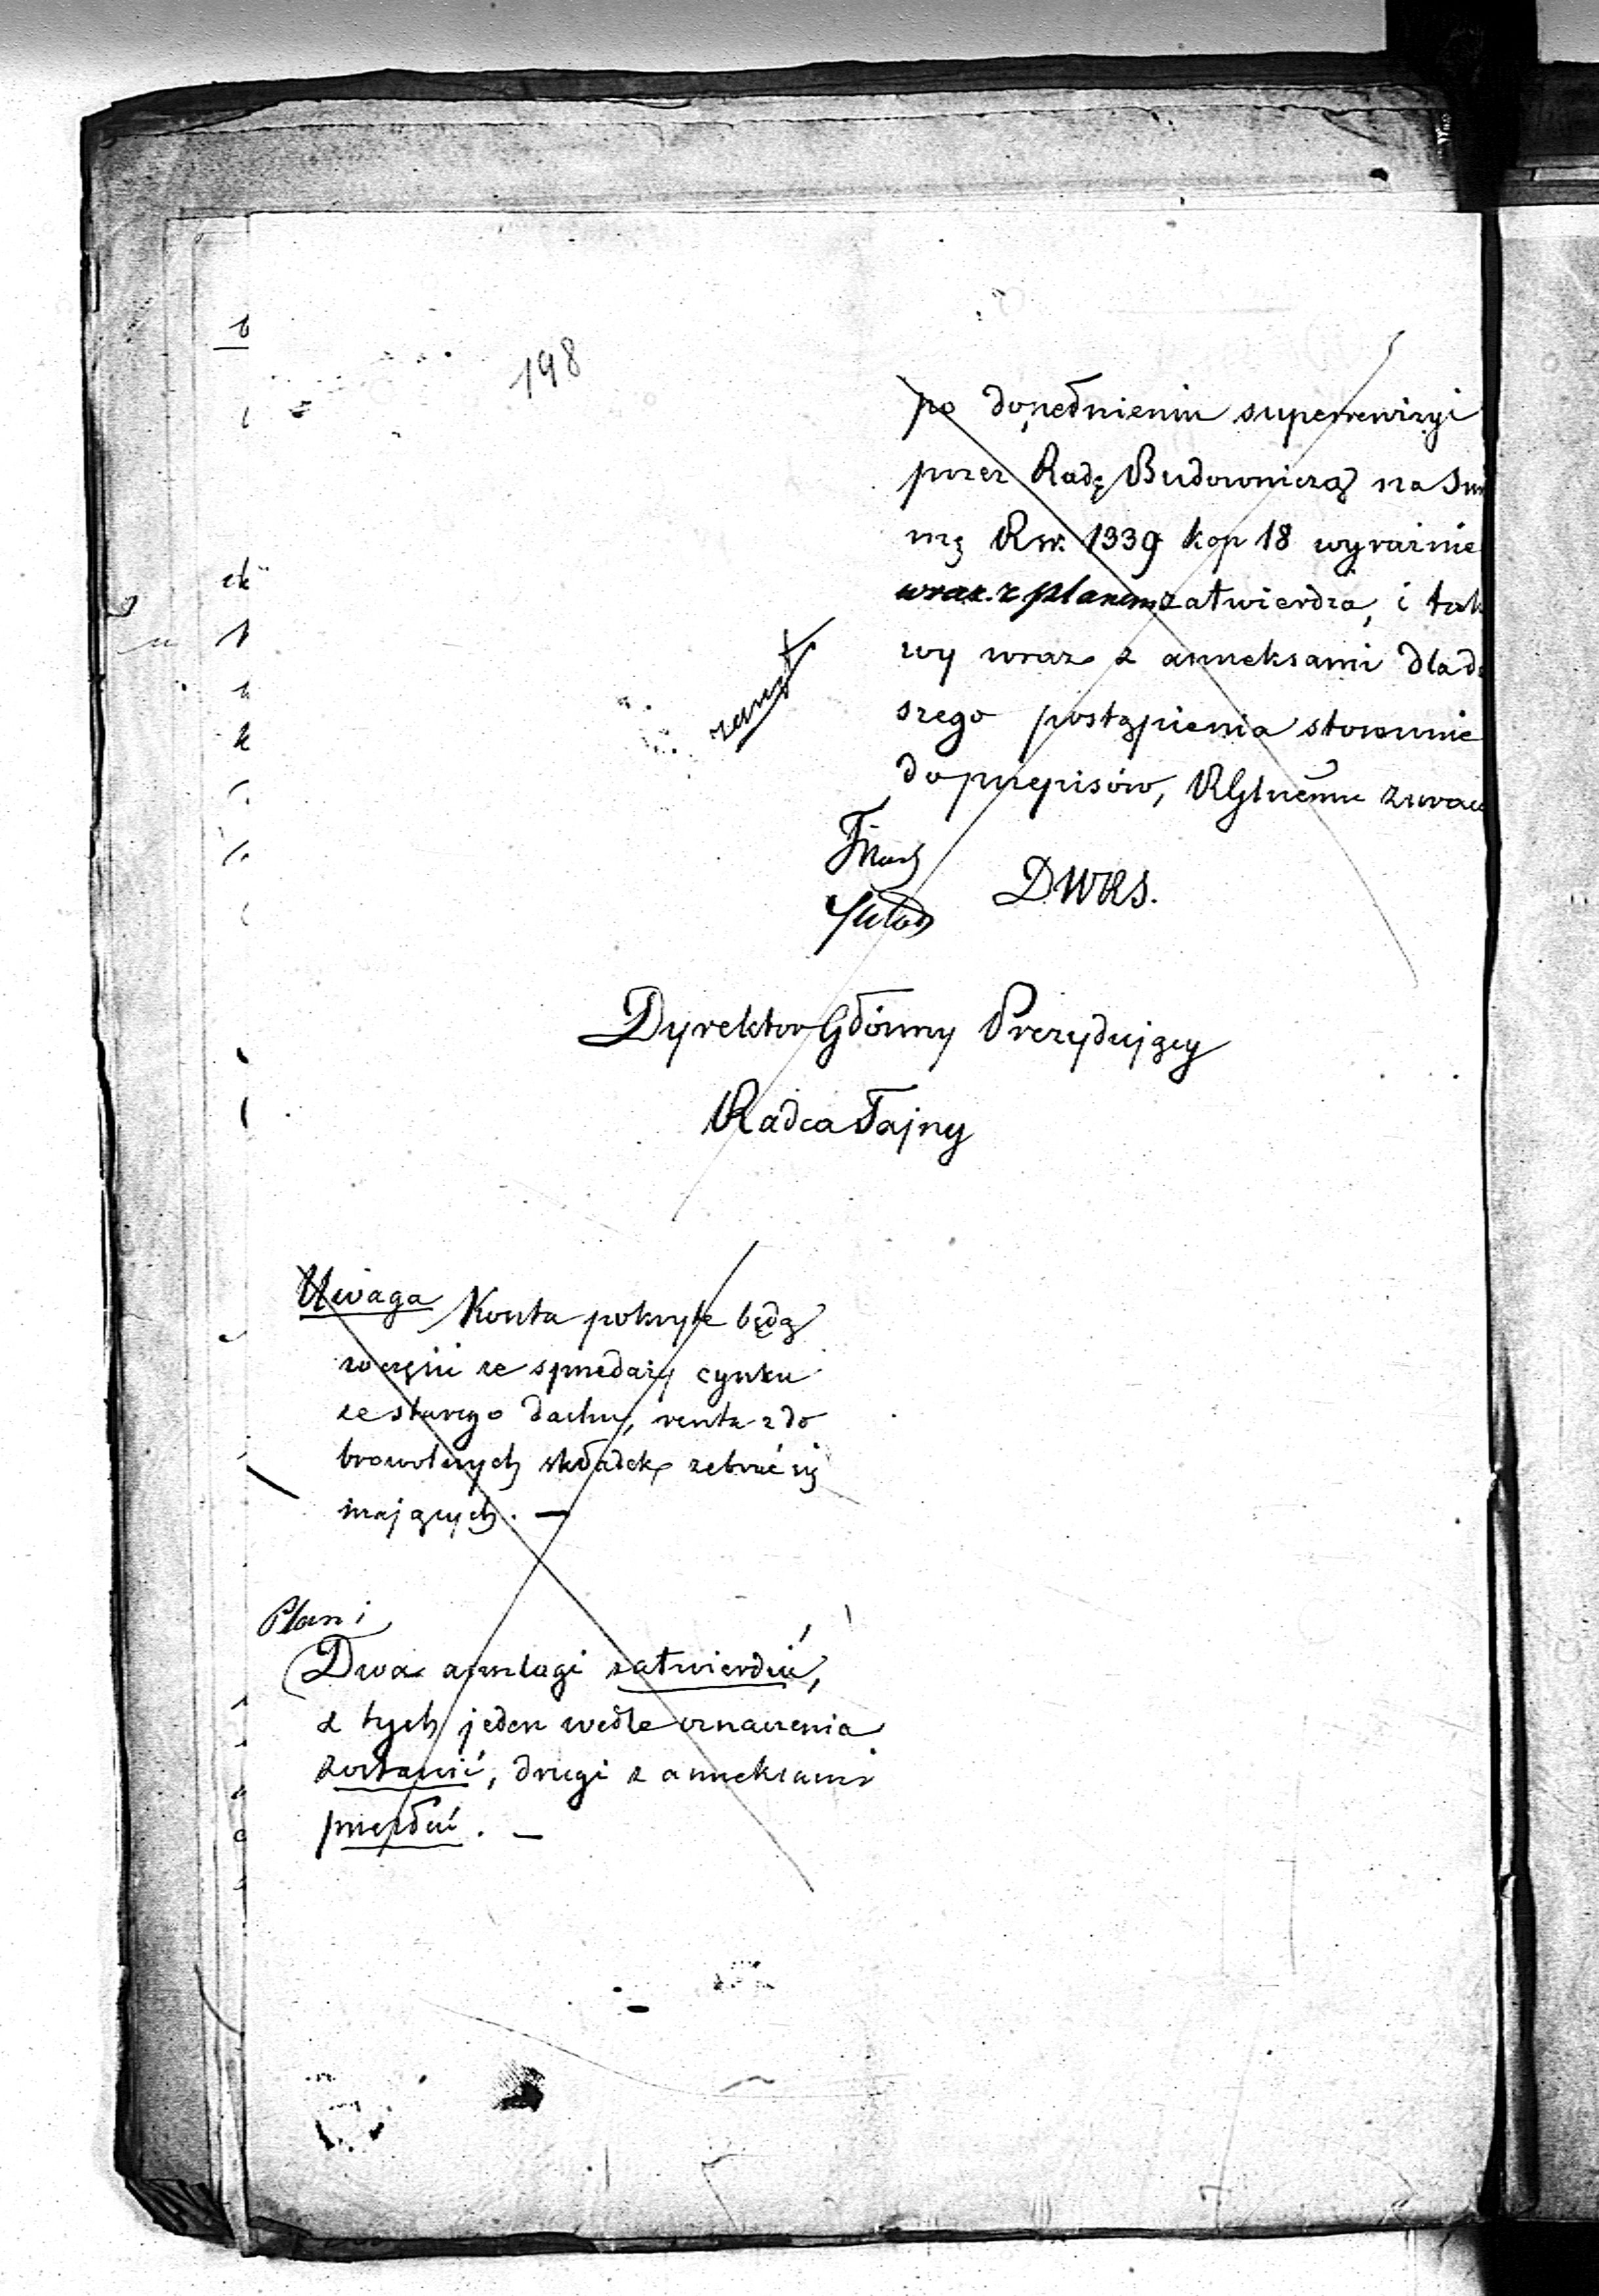 198
po dopełnieniu superrewizyi
przez Radę Budowniczą na Sum
mę Rsr. 1339 kop 18 wyraźnie
wraz z planem zatwierdza, i tak
wy wraz z anneksami dla d
szego postąpienia stosownie
do przepisów, RGlnemu zwrac
DWRS.
Dyrektor Główny Prezydujący
Radca Tajny
Uwaga Koszta pokryte będą
w części ze sprzedaży cynku
ze starego dachu, reszta z do
browolnych składek zebrać się
mających. —
Plan i
Dwa anszlagi zatwierdzić,
z tych jeden wedle oznaczenia
zostawić, drugi z anneksami
przesłać. —